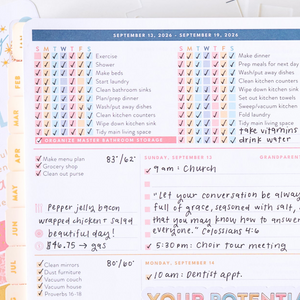 SEPTEMBER 13, 2026 - SEPTEMBER 19, 2026
S M T W T F S
Exercise
Shower
Make beds
Start laundry
Clean bathroom sinks
Plan/prep dinner
Wash/put away dishes
Clean kitchen counters
Wipe down kitchen sink
Tidy main living space
ORGANIZE MASTER BATHROOM STORAGE
S M T W T F S
Make dinner
Prep meals for tomorrow
Wash/put away dishes
Clean kitchen counters
Wipe down kitchen sink
Set out kitchen towels
Sweep/vacuum kitchen
Fold laundry
Tidy main living space
take vitamins
drink water
FEB
MAR
APR
MAY
JUN
JUL
Make menu plan
Grocery shop
Clean out purse
83°/62°
Pepper jelly bacon
wrapped chicken + salad
beautiful day!
$46.75 → gas
SUNDAY, SEPTEMBER 13
GRANDPAREN
9am: Church
"Let your conversation be alway
full of grace, seasoned with salt,
that you may know how to answe
everyone." Colossians 4:6
5:30pm: Choir tour meeting
Clean mirrors
Dust furniture
Vacuum couch
Vacuum house
Proverbs 16-18
80°/60°
MONDAY, SEPTEMBER 14
10am: Dentist appt.
YOUR POTENTIA